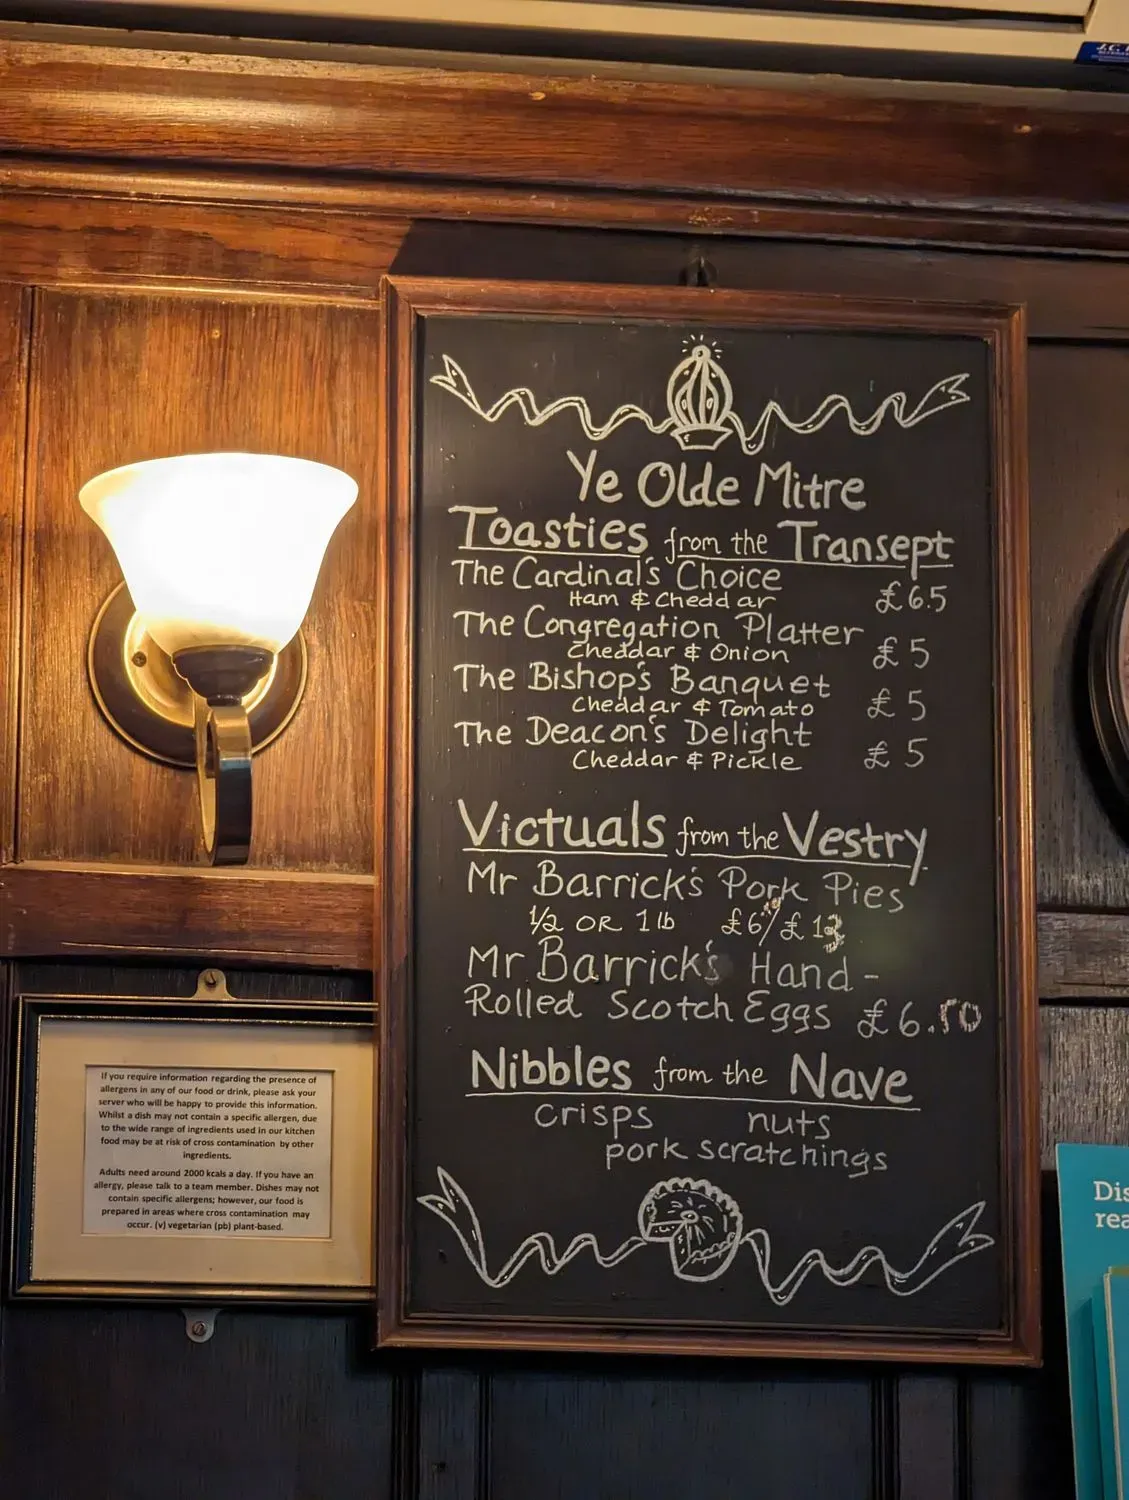 Ye Olde Mitre
Toasties from the Transept
The Cardinal's Choice
Ham & Cheddar £6.5
The Congregation Platter
Cheddar & Onion £5
The Bishop's Banquet
Cheddar & Tomato £5
The Deacon's Delight
Cheddar & Pickle £5
Victuals from the Vestry
Mr Barrick's Pork Pies
1/2 OR 1 lb £6/£13
Mr Barrick's Hand-
Rolled Scotch Eggs £6.50
Nibbles from the Nave
crisps nuts
pork scratchings
If you require information regarding the presence of
allergens in any of our food or drink, please ask your
server who will be happy to provide this information.
Whilst a dish may not contain a specific allergen, due
to the wide range of ingredients used in our kitchen
food may be at risk of cross contamination by other
ingredients.
Adults need around 2000 kcals a day. If you have an
allergy, please talk to a team member. Dishes may not
contain specific allergens; however, our food is
prepared in areas where cross contamination may
occur. (v) vegetarian (pb) plant-based.